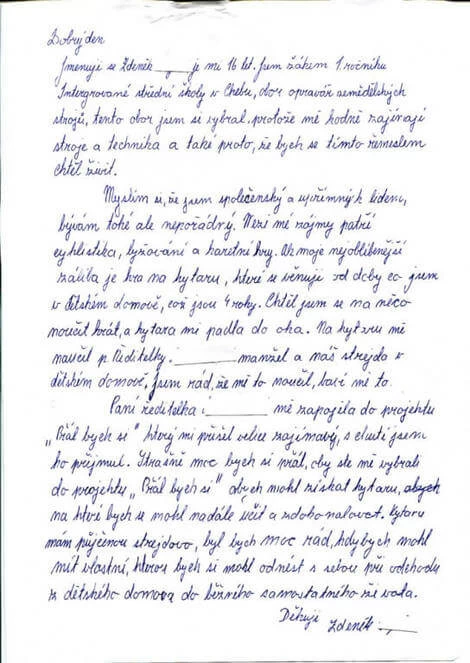 Dobrý den
Jmenuji se Zdeněk ____ je mi 16 let. Jsem žákem 1. ročníku
Intergrované střední školy v Chebu, obor opravář zemědělských
strojů, tento obor jsem si vybral protože mě hodně zajímají
stroje a technika a také proto, že bych se tímto řemeslem
chtěl živit.
Myslím si, že jsem společenský a upřímný k lidem,
bývám také ale nepořádný. Mezi mé zájmy patří
cyklistika, lyžování a karetní hry. Ale moje nejoblíbenější
záliba je hra na kytaru, které se věnuji od doby co jsem
v dětském domově, což jsou 4 roky. Chtěl jsem se na něco
naučit hrát, a kytara mi padla do oka. Na kytaru mě
naučil p. Ředitelky. ____ manžel a náš strejda v
dětském domově, jsem rád, že mě to naučil, baví mě to.
Paní ředitelka ____ mě zapojila do projektu
„Přál bych si" který mi přišel velice zajímavý, s chutí jsem
ho přijmul. Strašně moc bych si přál, aby ste mě vybrali
do projektu „Přál bych si" abych mohl získat kytaru,
na které bych se mohl nadále učit a zdokonalovat. Kytaru
mám půjčenou strejdovo, byl bych moc rád, kdybych mohl
mít vlastní, kterou bych si mohl odnést s sebou při odchodu
z dětského domova do běžného samostatného života.
Děkuji
Zdeněk